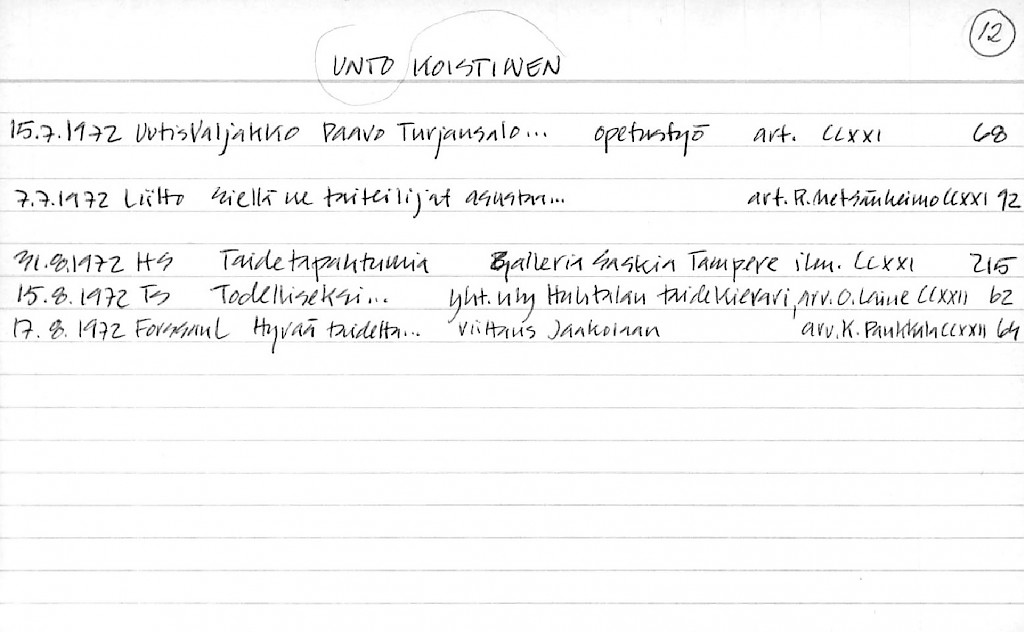 12
UNTO KOISTINEN
15.7.1972 Uutisvaljakko Paavo Turjansalo... opetustyö art. CCXXI 68
7.7.1972 Liitto Siellä ne taiteilijat asustaa... art. R. Metsänheimo CCXXI 92
31.8.1972 HS Taidetapahtumia Galleria Saskia Tampere ilm. CCXXI 215
15.8.1972 TS Todelliseksi... yht.näy Huhtalan taidekievari, arv. O. Laine CCXXII 62
17.8.1972 ForssanL Hyvää taidetta... viittaus Jaakolaan arv. K. Paukkala CCXXII 64